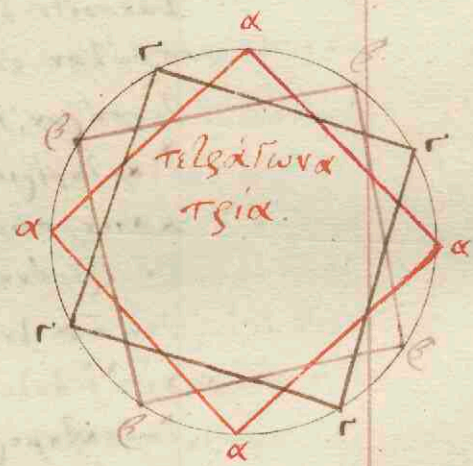 α
Γ
β
β
Γ
τετράγωνα
τρία.
α
α
Γ
β
β
Γ
α